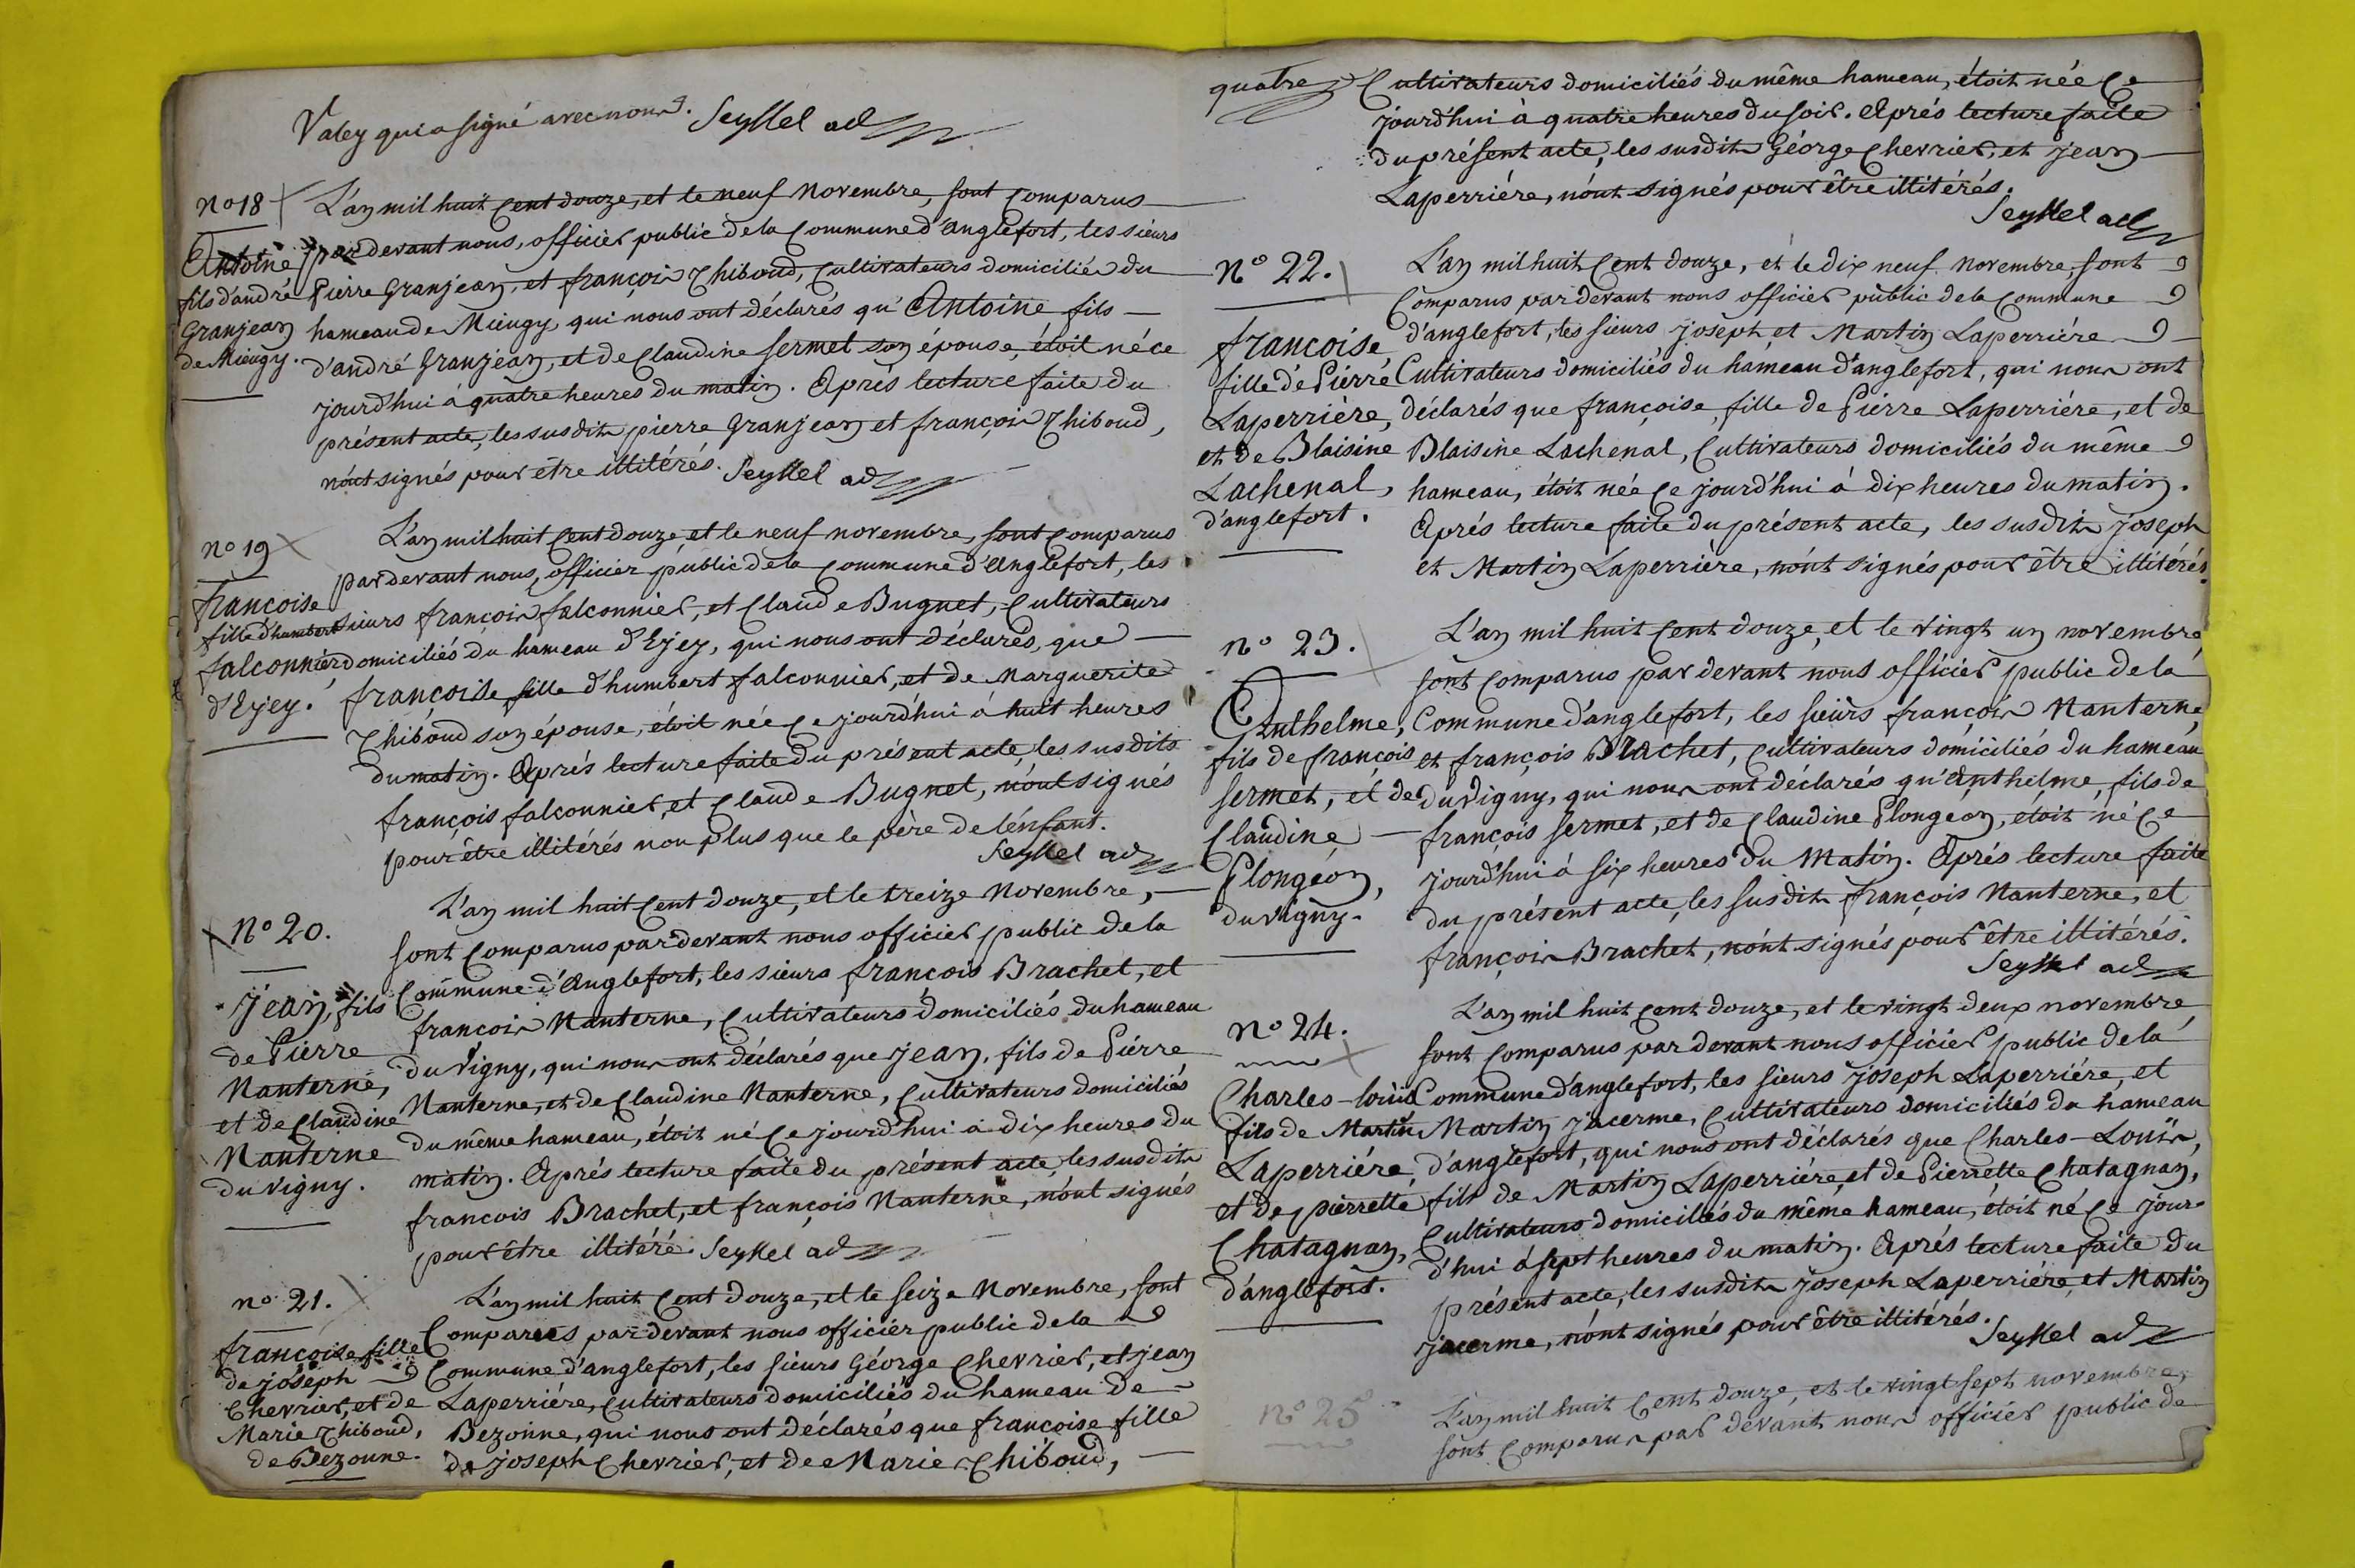 Valey qui a signé avec nous. Seyssel ad
n° 18
Antoine
fils d'andré
Granjean
de Mieugy.
L'an mil huit cent douze, et le neuf Novembre, sont comparus
pardevant nous, officier public de la commune d'anglefort, les sieurs
Pierre Granjean, et françois Thiboud, cultivateurs domiciliés du
hameau de Mieugy, qui nous ont déclarés qu'Antoine fils
d'andré Granjean, et de Claudine sermet son épouse, étoit né ce
jourd'hui à quatre heures du matin. Après lecture faite du
présent acte, les susdits pierre Granjean et françois Thiboud,
n'ont signés pour être illitérés. Seyssel ad
n° 19
francoise
fille d'humbert
falconnier
d'Ejey.
L'an mil huit cent douze, et le neuf novembre, sont comparus
pardevant nous, officier public de la commune d'Anglefort, les
sieurs françois falconnier, et Claude Bugnet, cultivateurs
domiciliés du hameau d'Ejey, qui nous ont déclarés, que
françoise fille d'humbert falconnier, et de Marguerite
Thiboud son épouse, étoit née ce jourd'hui à huit heures
du matin. Après lecture faite du présent acte, les susdits
françois falconnier, et Claude Bugnet, n'ont signés
pour être illitérés non plus que le père de l'enfant.
Seyssel ad
N° 20.
jean, fils
de Pierre
Nanterne,
et de Claudine
Nanterne
du vigny.
L'an mil huit cent douze, et le treize Novembre,
sont comparus pardevant nous officier public de la
Commune d'Anglefort, les sieurs françois Brachet, et
françois Nanterne, cultivateurs domiciliés du hameau
du Vigny, qui nous ont déclarés que jean, fils de Pierre
Nanterne, et de Claudine Nanterne, cultivateurs domiciliés
du même hameau, étoit né ce jourd'hui à dix heures du
matin. Après lecture faite du présent acte, les susdits
francois Brachet, et françois Nanterne, n'ont signés
pour être illitéré. Seyssel ad
n° 21.
françoise fille
de joseph
Chevrier, et de
Marie Thiboud,
de Bezonne.
L'an mil huit cent douze, et le seize Novembre, sont
Comparus pardevant nous officier public de la
Commune d'anglefort, les sieurs Géorge Chevrier, et jean
Laperriére, cultivateurs domiciliés du hameau de
Bezonne, qui nous ont déclarés que françoise fille
de joseph Chevrier, et de Marie Thiboud,
quatre
Cultivateurs domiciliés du même hameau, étoit née ce
jourd'hui à quatre heures du soir. Après lecture faite
du présent acte, les susdits Géorge Chevrier, et jean
Laperriére, n'ont signés pour être illitérés.
Seyssel ad
N° 22.
francoise
fille de Pierre
Laperrière,
et de Blaisine
Lachenal,
d'anglefort.
L'an mil huit cent douze, et le dix neuf Novembre, sont
Comparus pardevant nous officier public de la Commune
d'anglefort, les sieurs joseph et Martin Laperriére
Cultivateurs domiciliés du hameau d'anglefort, qui nous ont
déclarés que françoise, fille de Pierre Laperriére, et de
Blaisine Lachenal, Cultivateurs domiciliés du même
hameau, étoit née ce jourd'hui à dix heures du matin.
Après lecture faite du présent acte, les susdits joseph
et Martin Laperriére, n'ont signés pour être illitérés.
n° 23.
Anthelme,
fils de françois
sermet, et de
Claudine
Plongeon,
du Vigny.
L'an mil huit cent douze, et le vingt un novembre,
sont comparus par devant nous officier public de la
Commune d'anglefort, les sieurs françois Nanterne,
et françois Brachet, cultivateurs domiciliés du hameau
du Vigny, qui nous ont déclarés qu'Anthelme, fils de
françois sermet, et de Claudine Plongeon, étoit né ce
jourd'hui à six heures du Matin. Après lecture faite
du présent acte, les susdits françois Nanterne, et
françois Brachet, n'ont signés pour être illitérés.
Seyssel ad
n° 24.
Charles-loüis
fils de Martin
Laperriére,
et de pierrette
Chatagnan,
d'anglefort.
L'an mil huit cent douze, et le vingt deux novembre,
sont comparus par devant nous officier public de la
Commune d'anglefort, les sieurs joseph Laperriére, et
Martin jacerme, Cultivateurs domiciliés du hameau
d'anglefort, qui nous ont déclarés que Charles-Loüis,
fils de Martin Laperriére, et de Pierrette Chatagnan,
Cultivateurs domiciliés du même hameau, étoit né ce jour-
d'hui à sept heures du matin. Après lecture faite du
présent acte, les susdits joseph Laperriére, et Martin
jacerme, n'ont signés pour être illitérés.
Seyssel ad
n° 25
L'an mil huit cent douze, et le vingt sept novembre,
sont comparus par devant nous officier public de